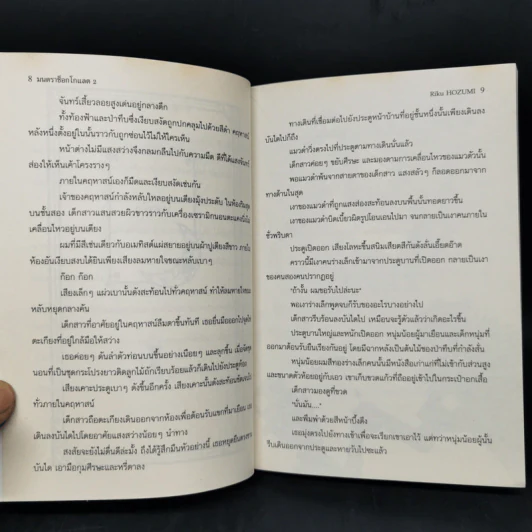 8 มนตราช็อกโกแลต 2
จันทร์เสี้ยวลอยสูงเด่นอยู่กลางดึก
ทั้งท้องฟ้าและป่าทึบซึ่งเงียบสงัดถูกปกคลุมไปด้วยสีดำ คฤหาสน์
หลังหนึ่งตั้งอยู่ในนั้นราวกับถูกซ่อนไว้ไม่ให้ใครเห็น
หน้าต่างไม่มีแสงสว่างจึงกลมกลืนไปกับความมืด ดีที่ได้แสงจันทร์
ส่องให้เห็นเค้าโครงรางๆ
ภายในคฤหาสน์เองก็มืดและเงียบสงัดเช่นกัน
เจ้าของคฤหาสน์กำลังหลับใหลอยู่บนเตียงมุ้งประดับ ในห้องริมสุด
บนชั้นสอง เด็กสาวแสนสวยผิวขาวราวกับเครื่องเซรามิกนอนตะแคงนิ่งไม่
เคลื่อนไหวอยู่บนเตียง
ผมที่มีสีเช่นเดียวกับอเมทิสต์แผ่สยายอยู่บนผ้าปูเตียงสีขาว ภายใน
ห้องอันเงียบสงบได้ยินเพียงเสียงลมหายใจขณะหลับเบาๆ
ก๊อก ก๊อก
เสียงเล็กๆ แผ่วเบานั้นดังสะท้อนไปทั่วคฤหาสน์ ทำให้ลมหายใจขณะ
หลับหยุดกลางคัน
เด็กสาวที่อาศัยอยู่ในคฤหาสน์ลืมตาขึ้นทันที เธอยื่นมือออกไปจุดไฟ
ตะเกียงที่อยู่ใกล้มือให้สว่าง
เธอค่อยๆ ดันลำตัวท่อนบนขึ้นอย่างเนือยๆ และลุกขึ้น เมื่อจัดชุด
นอนที่เป็นชุดกระโปรงยาวติดลูกไม้ถักเรียบร้อยแล้วก็เดินไปยังประตูห้อง
เสียงเคาะประตูเบาๆ ดังขึ้นอีกครั้ง เสียงเคาะนั้นดังสะท้อนชัดเจนไป
ทั่วภายในคฤหาสน์
เด็กสาวถือตะเกียงเดินออกจากห้องเพื่อต้อนรับแขกที่มาเยือน เธอ
เดินลงบันไดไปโดยอาศัยแสงสว่างน้อยๆ นำทาง
สงสัยจะยังไม่ตื่นดีล่ะมั้ง ถึงได้รู้สึกมึนหัวอย่างนี้ เธอหยุดยืนตรง
บันได เอามือกุมศีรษะและหรี่ตาลง
Riku HOZUMI 9
ทางเดินที่เชื่อมต่อไปยังประตูหน้าบ้านที่อยู่ชั้นหนึ่งนั้นเพียงเดินลง
บันไดไปก็ถึง
แมวดำวิ่งตรงไปที่ประตูตามทางเดินนั่นแล้ว
เด็กสาวค่อยๆ ขยับศีรษะ และมองตามการเคลื่อนไหวของแมวตัวนั้น
พอแมวดำพ้นจากสายตาของเด็กสาว แสงสลัวๆ ก็ลอดออกมาจาก
ทางด้านในสุด
เงาของแมวดำที่ถูกแสงส่องสะท้อนลงบนพื้นนั้นทอดยาวขึ้น
เงาของแมวดำบิดเบี้ยวผิดรูปโอนเอนไปมา จนกลายเป็นเงาคนภายใน
ชั่วพริบตา
ประตูเปิดออก เสียงโลหะขึ้นสนิมเสียดสีกันดังลั่นเอี๊ยดอ๊าด
คราวนี้มีเงาร่างเล็กเข้ามาจากประตูบานที่เปิดออก กลายเป็นเงา
ของคนสองคนปรากฏอยู่
"ถ้างั้น ผมขอรับไปล่ะนะ"
พอเงาร่างเล็กพูดจบก็รับของอะไรบางอย่างไป
เด็กสาวรีบร้อนลงบันไดไป เหมือนจะรู้ตัวแล้วว่าเกิดอะไรขึ้น
ประตูบานใหญ่และหนักเปิดออก หนุ่มน้อยผู้มาเยือนและเด็กหนุ่มที่
ออกมาต้อนรับยืนเรียงกันอยู่ โดยมีฉากหลังเป็นต้นไม้ของป่าทึบที่กำลังสั่น
หนุ่มน้อยผมสีทองร่างเล็กคนนั้นมีหนังสือเก่าแก่ที่ไม่เข้ากับส่วนสูง
และขนาดตัวห้อยอยู่กับเอว เขาเก็บขวดแก้วที่ถืออยู่เข้าไปในกระเป๋าอกเสื้อ
เด็กสาวมองดูที่ขวด
"นั่นมัน...."
และพึมพำด้วยสีหน้าบึ้งตึง
เธอมุ่งตรงไปยังทางเข้าเพื่อจะเรียกเขาเอาไว้ แต่ทว่าหนุ่มน้อยผู้นั้น
รีบเดินออกจากประตูและหายวับไปซะแล้ว